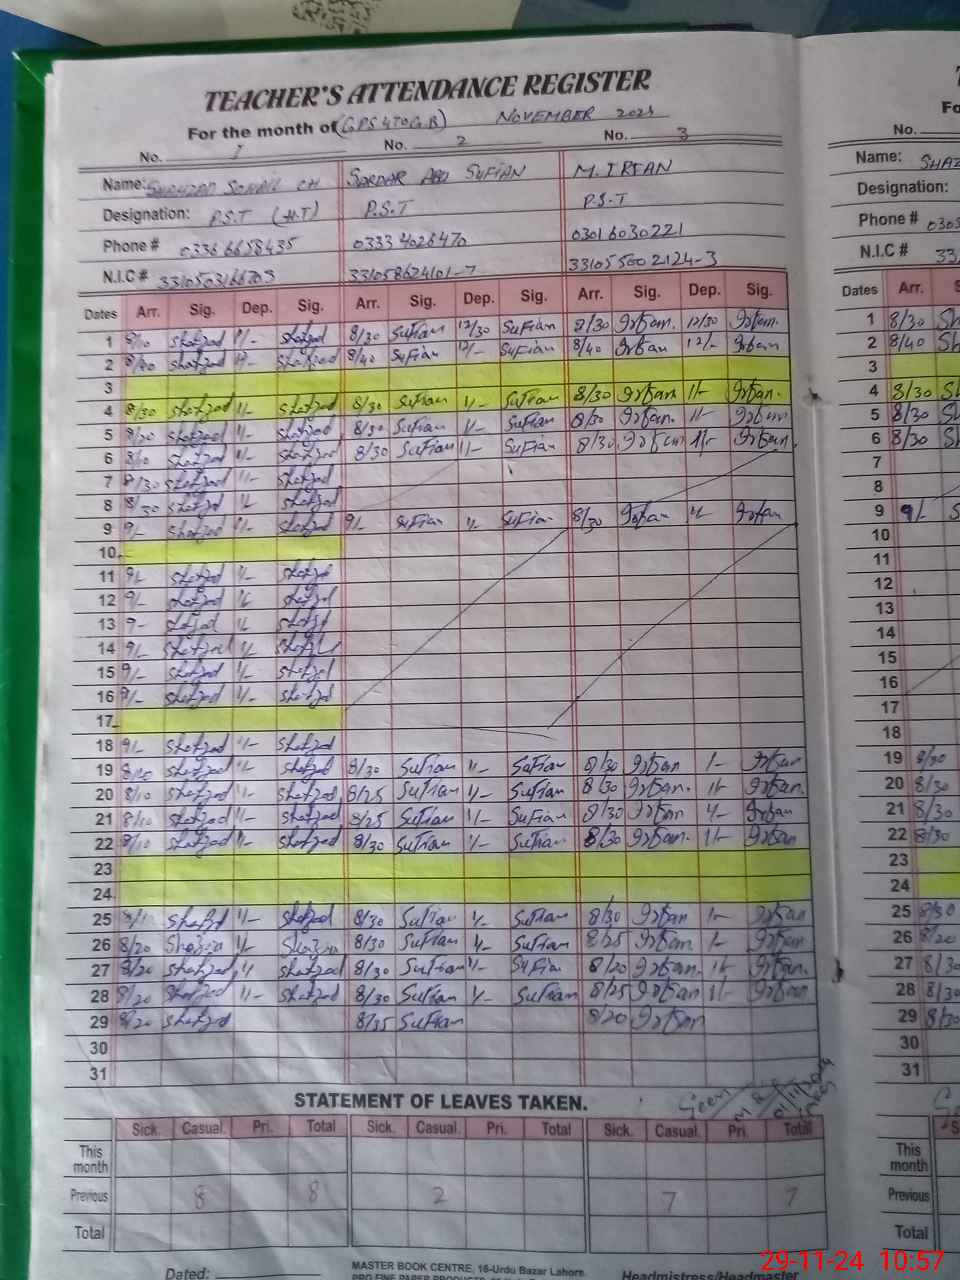 TEACHER'S ATTENDANCE REGISTER
For the month of (G.P.S 470 G.B) NOVEMBER 2024
No. 1 No. 2 No. 3 No.
Name: SOHAIL CH SARDAR ABU SUFIAN M. IRFAN Name: SHAZ
Designation: P.S.T (H.T) P.S.T P.S.T Designation:
Phone # 0336 6658435 0333 4026470 0301 6030221 Phone # 0305
N.I.C # 3310503166703 331058624101-7 33105 5602124-3 N.I.C # 33
Dates Arr. Sig. Dep. Sig. Arr. Sig. Dep. Sig. Arr. Sig. Dep. Sig. Dates Arr. S
1 8/10 Shahzad 1/- Shahzad 8/30 Sufian 12/30 Sufian 8/30 Irfan. 12/30 Irfan. 1 8/30 Sh
2 8/40 Shahzad 12/- Shahzad 8/40 Sufian 12/- Sufian 8/40 Irfan 12/- Irfan 2 8/40 Sh
3 3
4 8/30 Shahzad 1/- Shahzad 8/30 Sufian 1/- Sufian 8/30 Irfan 1/- Irfan. 4 8/30 Sh
5 8/20 Shahzad 1/- Shahzad 8/30 Sufian 1/- Sufian 8/30 Irfan. 1/- Irfan 5 8/30 Sh
6 8/10 Shahzad 1/- Shahzad 8/30 Sufian 1/- Sufian 8/30 Irfan 1/- Irfan 6 8/30 Sh
7 8/30 Shahzad 1/- Shahzad 7
8 8/30 Shahzad 1/- Shahzad 8
9 9/- Shahzad 1/- Shahzad 9/- Sufian 1/- Sufian 8/30 Irfan 1/- Irfan 9 9/- S
10 10
11 9/- Shahzad 1/- Shahzad 11
12 9/- Shahzad 1/- Shahzad 12
13 9- Shahzad 1/- Shahzad 13
14 9/- Shahzad 1/- Shahzad 14
15 9/- Shahzad 1/- Shahzad 15
16 9/- Shahzad 1/- Shahzad 16
17 17
18 9/- Shahzad 1/- Shahzad 18
19 8/15 Shahzad 1/- Shahzad 8/30 Sufian 1/- Sufian 8/30 Irfan 1- Irfan 19 8/30
20 8/10 Shahzad 1/- Shahzad 8/25 Sufian 1/- Sufian 8/30 Irfan. 1/- Irfan. 20 8/30
21 8/10 Shahzad 1/- Shahzad 8/25 Sufian 1/- Sufian 8/30 Irfan 1/- Irfan 21 8/30
22 8/10 Shahzad 1/- Shahzad 8/30 Sufian 1/- Sufian 8/30 Irfan. 1/- Irfan 22 8/30
23 23
24 24
25 Shahzad 1/- Shahzad 8/30 Sufian 1/- Sufian 8/30 Irfan 1- Irfan 25 8/30
26 8/20 1/- 8/30 Sufian 1/- Sufian 8/25 Irfan. 1- Irfan 26 8/20
27 8/20 Shahzad 1/- Shahzad 8/30 Sufian 1/- Sufian 8/20 Irfan. 1/- Irfan. 27 8/30
28 8/20 Shahzad 1/- Shahzad 8/30 Sufian 1/- Sufian 8/25 Irfan 1/- Irfan 28 8/30
29 8/20 Shahzad 8/35 Sufian 8/20 Irfan 29 8/30
30 30
31 31
Seen
STATEMENT OF LEAVES TAKEN.
Sick. Casual. Pri. Total Sick. Casual. Pri. Total Sick. Casual. Pri. Total
This month This month
Previous 8 8 2 7 7 Previous
Total Total
Dated: MASTER BOOK CENTRE, 16-Urdu Bazar Lahore. Headmistress/Headmaster
29-11-24 10:57